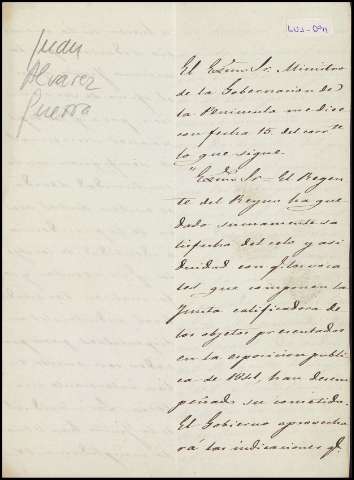 Juan
Alvarez
Guerra
El Exmo. Sr. Ministro
de la Gobernacion de
la Peninsula me dice
con fecha 15. del corr.te
lo que sigue.
"Exmo. Sr. El Regen
te del Reyno ha que
dado sumamente sa
tisfecho del celo y asi
duidad con q. los voca
les que componen la
Junta calificadora de
los objetos presentados
en la esposicion publi
ca de 1841, han desem
peñado su cometido.
El Gobierno aprovecha
rá las indicaciones q.